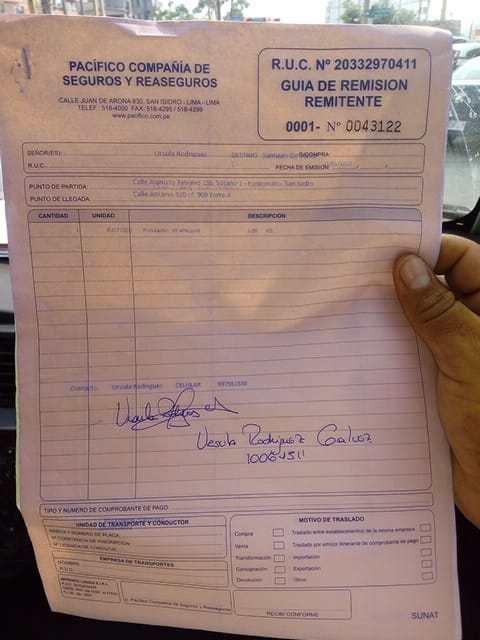 PACÍFICO COMPAÑÍA DE
SEGUROS Y REASEGUROS
CALLE JUAN DE ARONA 830, SAN ISIDRO - LIMA - LIMA
TELEF.: 518-4000 FAX: 518-4295 / 518-4299
www.pacifico.com.pe
R.U.C. Nº 20332970411
GUIA DE REMISION
REMITENTE
0001- Nº 0043122
SEÑOR(ES): Ursula Rodriguez DESTINO Santiago De
R.U.C. FECHA DE EMISION:
PUNTO DE PARTIDA
PUNTO DE LLEGADA
CANTIDAD UNIDAD DESCRIPCIÓN
Contacto Ursula Rodriguez CELULAR
Ursula Rodriguez Galvez
TIPO Y NUMERO DE COMPROBANTE DE PAGO
UNIDAD DE TRANSPORTE Y CONDUCTOR
MARCA Y NUMERO DE PLACA:
Nº CONSTANCIA DE INSCRIPCION:
Nº LICENCIA DE CONDUCIR:
EMPRESA DE TRANSPORTES
NOMBRE:
R.U.C.:
p. Pacífico Compañía de Seguros y Reaseguros
MOTIVO DE TRASLADO
Compra Traslado entre establecimientos de la misma empresa
Venta Traslado por emisor itinerante de comprobante de pago
Transformación Importación
Consignación Exportación
Devolución Otros
RECIBI CONFORME
SUNAT